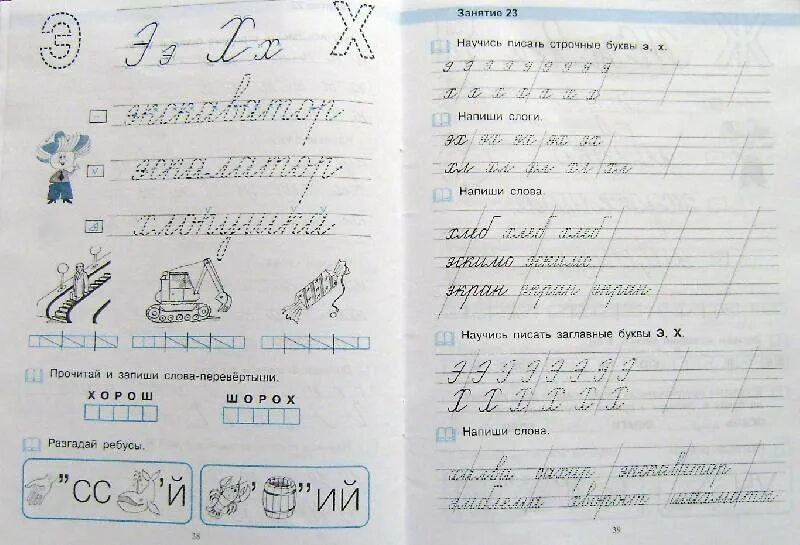 Э Ээ Хх Х
экскаватор
эскалатор
хлопушка
Прочитай и запиши слова-перевёртыши.
ХОРОШ ШОРОХ
Разгадай ребусы.
”СС ’Й ’ ”ИЙ
38
Занятие 23
Научись писать строчные буквы э, х.
э э э э э э э э э
х х х х х х х
Напиши слоги.
эх эк эк эк эх
хл хл хл хл
Напиши слова.
хлеб хлеб хлеб
эскимо эскимо
экран экран экран
Научись писать заглавные буквы Э, Х.
Э Э Э Э Э Э Э
Х Х Х Х Х Х
Напиши слова.
халва эскаватор
эмблема хворост шахматы
39